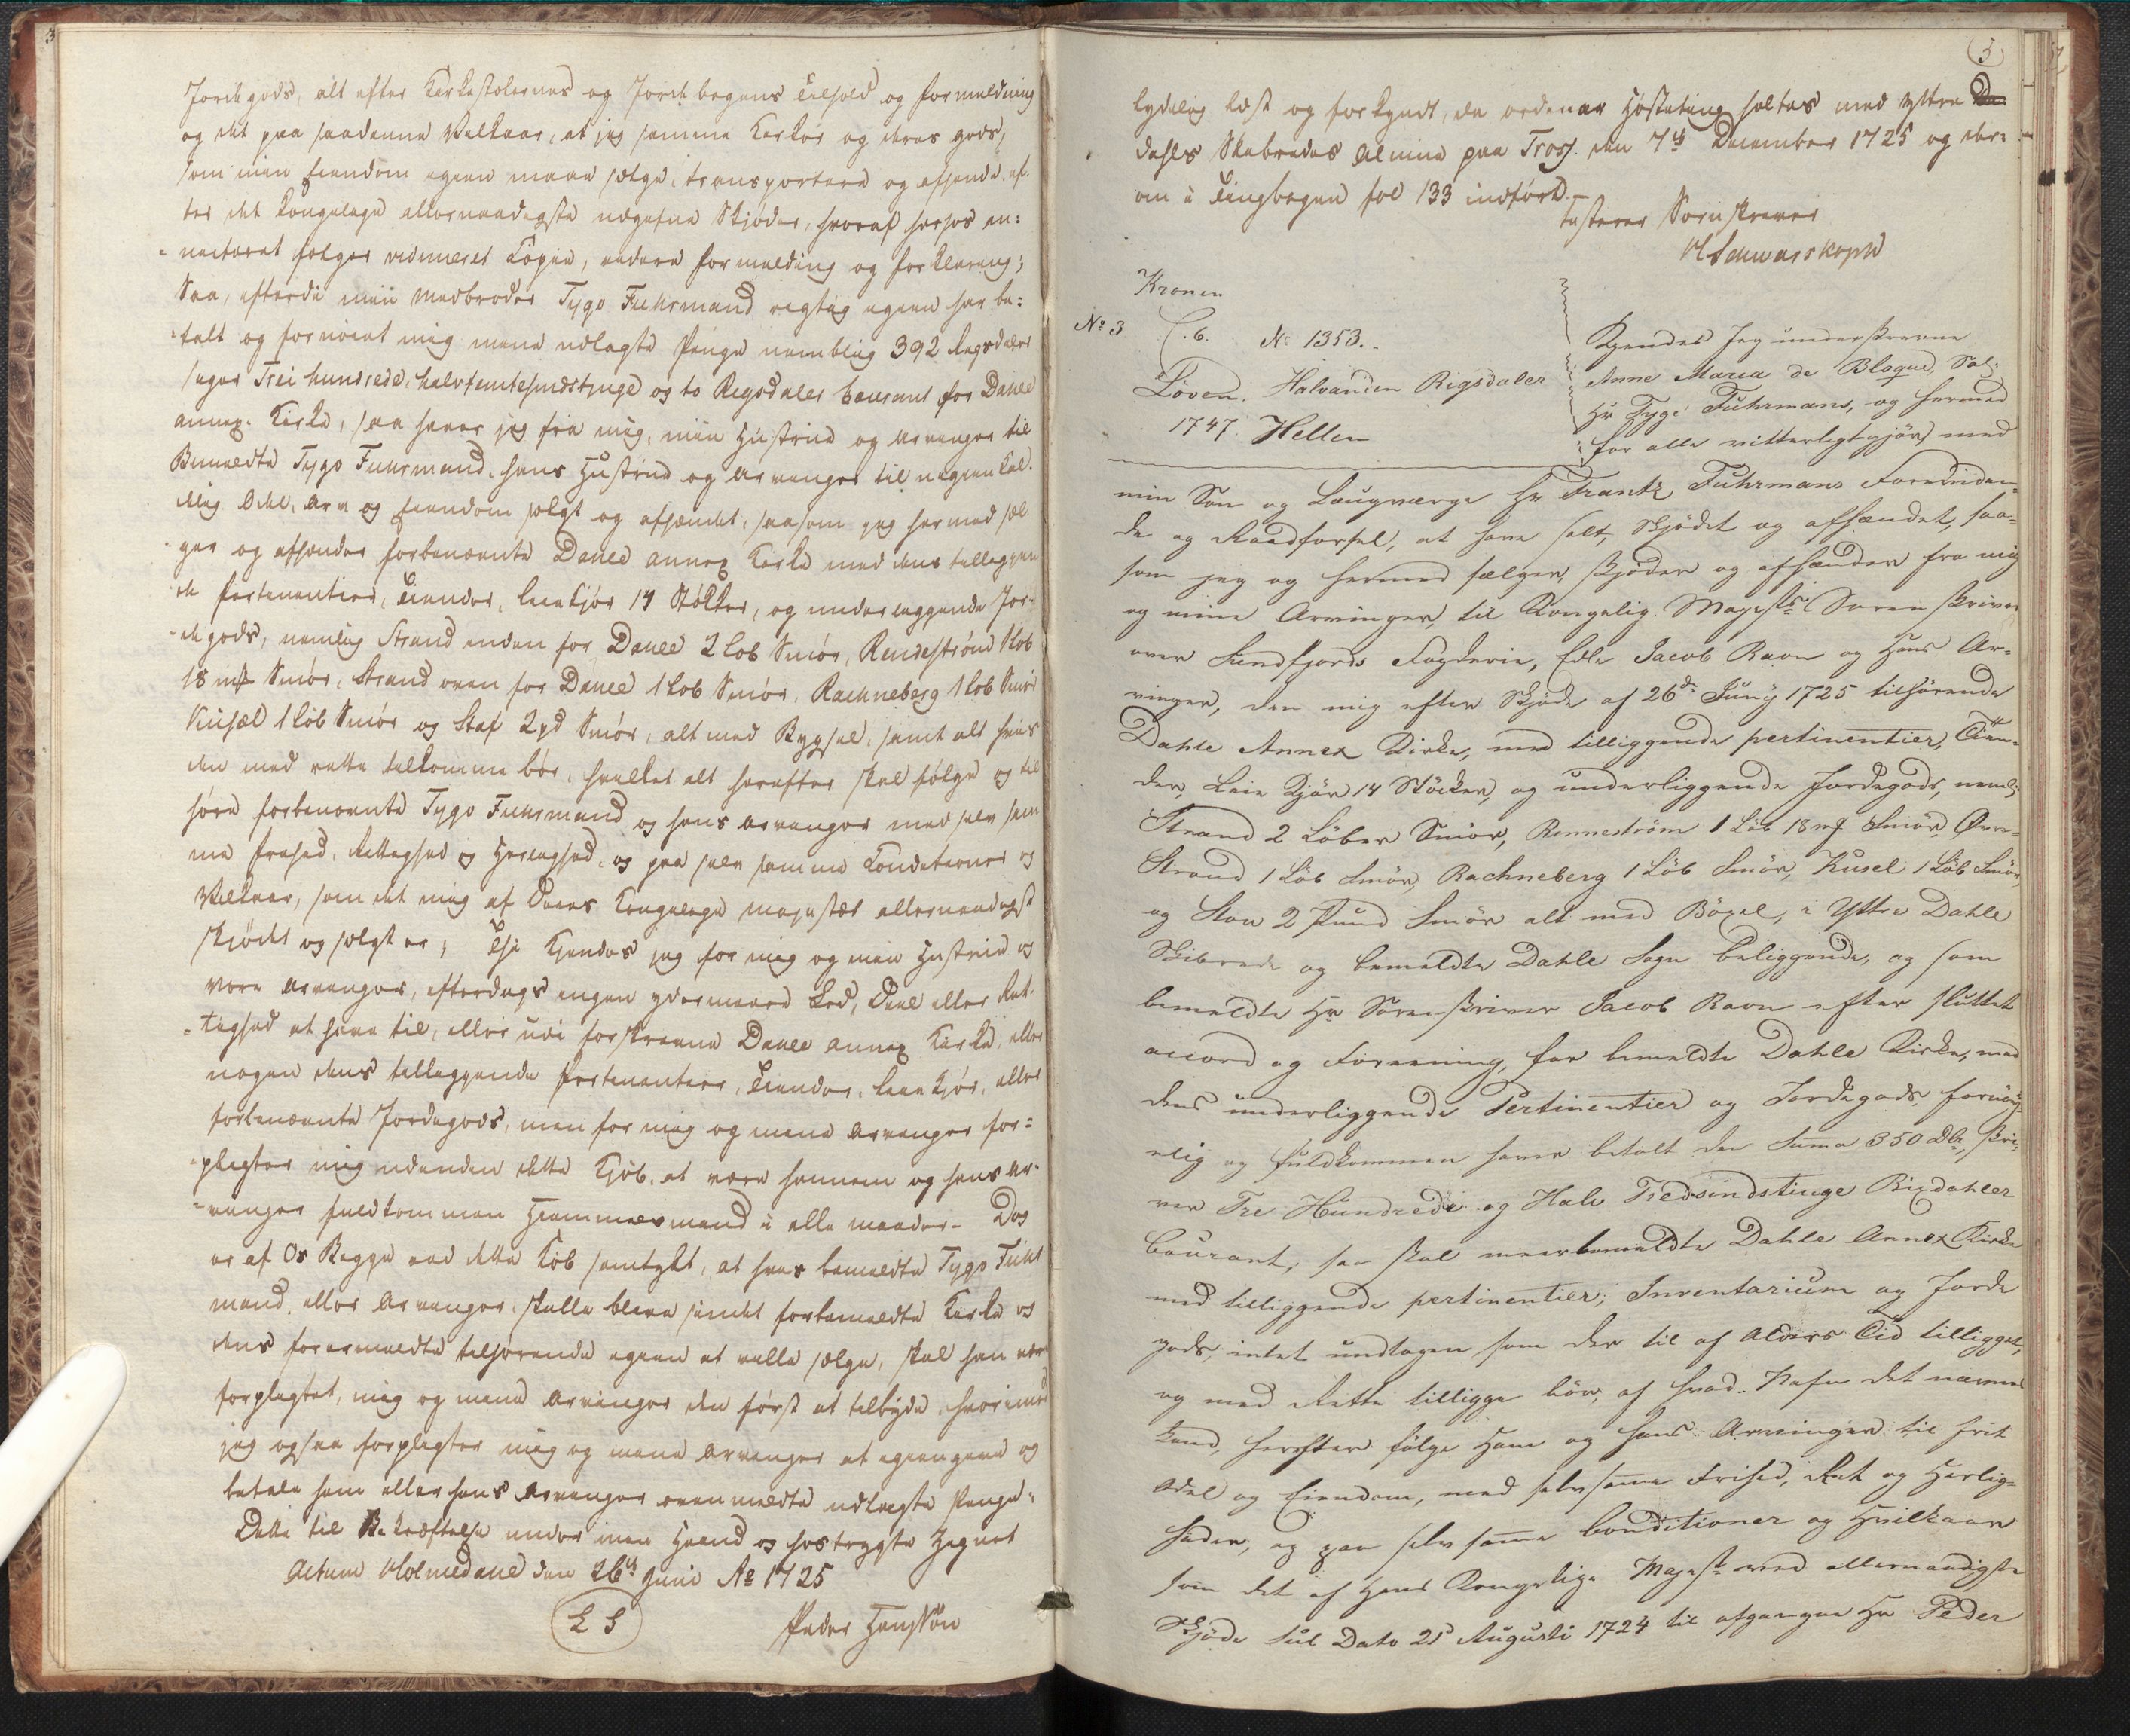 Jordegods, alt efter Kirkestolernes og Jordebogens Tilhold og formelding
og det paa saadanne Velkaar, at jeg samme Kirker og deres gods,
som min Eiendom igien maae selge, transportere og afhende, ef-
ter det Kongelige allernaadigste udgifne Skjöder, hvoraf herhos an:
noteret følger vidimeret Copie, videre formelding og forklaring;
Saa, efterdi min Medbroder Tygo Fuhrmand rigtig igien har be:
talt og fornöiet mig mine udlagte Penge nemblig 392 Rigsdaler
siger Trei hundrede, halvfemtesindstyge og to Rigsdaler Courant for Dahle
annex Kirke, saa haver jeg fra mig, min Hustrue og Arvinger til
Bemeldte Tygo Fuhrmand, hans Hustrue og Arvinger til
Odel, Arv og Eiendom solgt og afhændet, saasom jeg hermed sel-
ger og afhender forbenævnte Dahle annex Kirke med dens tilliggen
de Pertinentier, Tiender, Leie Kjör 14 Stöcker, og underliggende Jor-
degods, nemlig Strand neden for Dahle 2 Lob Smör, Renneströnd 1 Lob
18 mrk Smör, Strand oven for Dahle 1 Lob Smör, Rachneberg 1 Lob Smör
Kusæl 1 Löb Smör og Staf 2 pd Smör, alt med Bygsel, samt alt hvis
den med rette tilkomme bör, hvilket alt herefter skal følge og til
höre forbenævnte Tygo Fuhrmand og hans Arvinger med selv sam
me frihed, Rettighed og Herlighed, og paa selv samme Conditioner og
Velkaar, som det mig af Deres Kongelige Majestæt allernaadigst
skjödet og solgt er; Thi Kjendes jeg for mig og min Hustrue og
vore Arvinger, efterdags ingen ydermeere Lod, Deel eller Ret-
tighed at have til, eller udi forskrevne Dahle annex Kirke, eller
nogen dens tilliggende Pertinentier, Tiender, Leie Kjör, eller
forbenævnte Jordegods, men for mig og mine Arvinger for=
pligter mig udi dette Kjöb, at være hannem og hans Ar-
vinger fuldkommen Hiemmelsmand i alle maader - Dog
er af Os Begge ved dette Köb samtykt, at hvis bemeldte Tygo Fuhr
mand, eller Arvinger skulle blive sindet forbemeldte Kirke og
dens forermeldte tilhörende igien at ville selge, skal han være
forpligtet, mig og mine Arvinger den först at tilbyde, hvorimod
jeg ogsaa forpligter mig og mine Arvinger at igiengive og
betale ham eller hans Arvinger ovenmeldte udlagte Penge.
Dette til Bekræftelse under min Haand og hostrygte Zignet
Actum Holmedahl den 26de Juni Ao 1725
L S Peder Hanssön
(3)
lydelig læst og forkyndt, da ordinair Hösteting holtes med Yttre Da
dahls Skibredes Almue paa Tross. den 7de December 1725 og der-
om i Tingbogen fol 133 indfört.
testerer Sorenskriver
H Schwarskoph
Kronen
No 3
C. 6. No 1353.
Löven. Halvanden Rigsdaler
1747. Hellen
Kjendes Jeg underskrevne
Anne Maria de Bloque, Sal:
Hr Tyge Fuhrmans, og hermed
for alle vitterligtgjör, med
min Sön og Laugværge Hr Frantz Fuhrmans Foreviden-
de og Raadförsel, at have solt, Skjödet og afhændet, saa-
som jeg og hermed sælger, skjöder og afhænder fra mig
og mine Arvinger, til Kongelig Majests Soren skriver
over Sundfjords Fogderie, Edle Jacob Ravn og Hans Ar-
vinger, den mig efter Skjöde af 26de Junÿ 1725 tilhörende
Dahle Annex Kirke, med tilliggende pertinentier, Tien-
der, Leie Kjör 14 Stöcker, og underliggende Jordegods, neml:
Strand 2 Löber Smör, Renneström 1 Löb 18 mrk Smör, Over-
Strand 1 Löb Smör, Rachneberg 1 Löb Smör, Kusel 1 Löb Smör,
og Stou 2 Pund Smör alt med Böxel, i Yttre Dahle
Skibrede og bemeldte Dahle Sogn beliggende, og som
bemeldte Hr Sorenskriver Jacob Ravn efter sluttet
accord og Foreening, for bemeldte Dahle Kirke, med
dens underliggende Pertinentier og Jordegods, fornöy-
elig og fuldkommen haver betalt den Suma 350 Rdlr, skri-
ver Tre Hundrede og Halv Tredsindstiuge Rixdahler
Courant; saa skal meerbemeldte Dahle Annex Kirke
med tilliggende pertinentier, Inventarium og Jorde
gods, intet undtagen som der til af Alders Tid tilligget,
og med Rette tilligge bör, af hvad Nafn det nævnes
kand, herefter følge Ham og hans Arvinger til frit
Odel og Eiendom, med selvsamme Frihed, Ret og Herlig-
heder, og paa selvsamme Conditioner og Hvilkaar
som det af Hans Kongelige Majest: med allernaadigste
Skjöde sub Dato 21 Augusti 1724 til afgangne Hr Peder